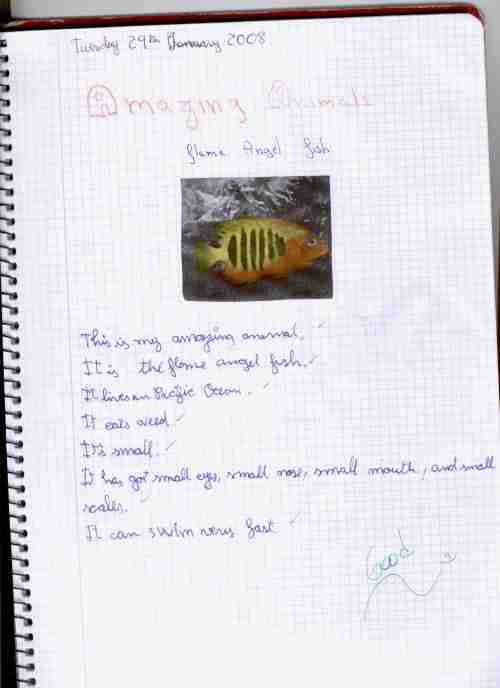 Tuesday 29th January 2008
Amazing Animals
flame Angel fish
This is my amazing animal.
It is the flame angel fish.
It lives in Pacific Ocean.
It eats weed
It's small.
It has got small eyes, small nose, small mouth, and small
scales.
It can swim very fast
Good